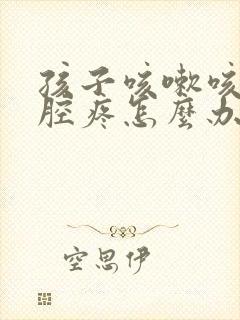 孩子咳嗽咳
腔疼怎麼办
空思伊